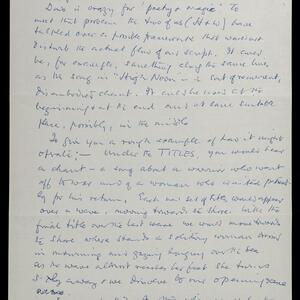 Dino is crazy for "poetry & magic". To
meet that problem the two of us (H + w) have
talked over a possible framework that wouldn't
disturb the actual flow of our script. It could
be, for example, something along the same lines
as the song in "High Noon" – a sort of recurrent,
disembodied chant. It could be used at the
beginning & at the end and at some suitable
place, possibly, in the middle
To give you a rough example of how it might
operate; – Under the TITLES, you would hear
a chant – a song about a warrior who went
off to war and of a woman who waited
for his return. Each set of titles would appear
over a wave, moving towards the shore. With the
final title over the last wave we would move towards
the shore where stands a solitary woman
in mourning and gazing hungrily over the sea
As the wave almost reaches her feet she turns
away & we dissolve to our opening scene